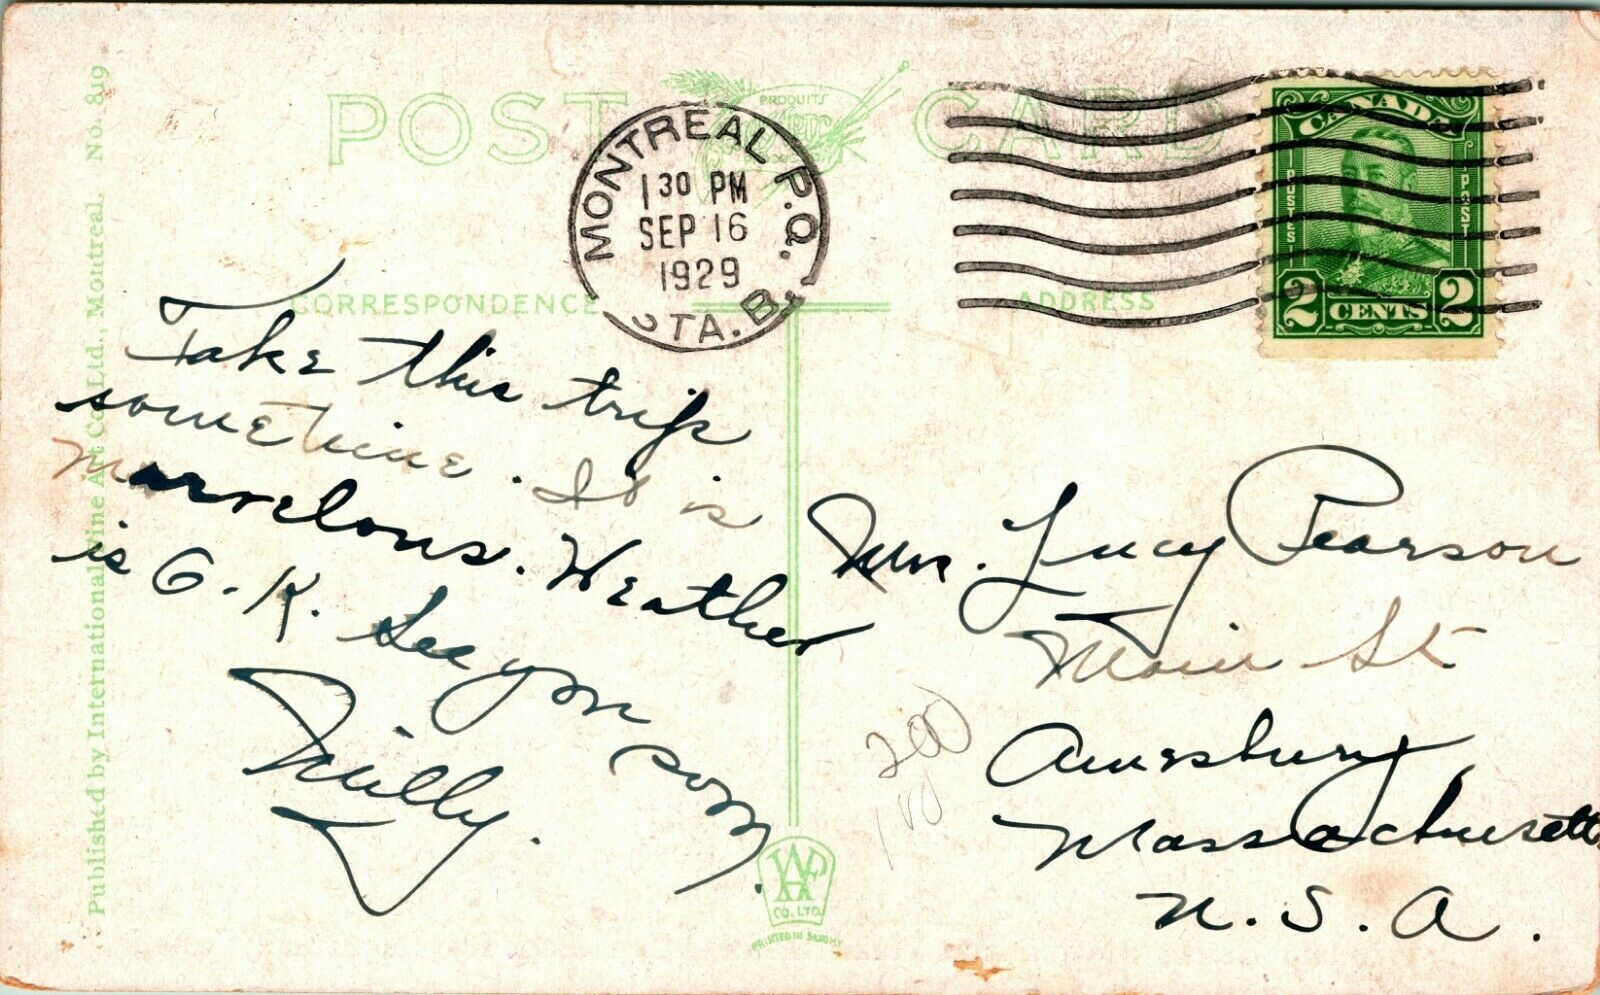 POST CARD
PRODUITS
MONTREAL P.Q.
1 30 PM
SEP 16
1929
STA. B
CANADA
POSTES
POST
2 CENTS 2
CORRESPONDENCE
ADDRESS
Take this trip
sometime. It is
marvelous. Weather
is O.K. See you
soon.
Milly.
Mrs. Lucy Pearson
Main St
Amesbury
Massachusetts
U.S.A.
200
Published by International Fine Art Co. Ltd., Montreal. No. 819
CO. LTD.
PRINTED IN SAXONY